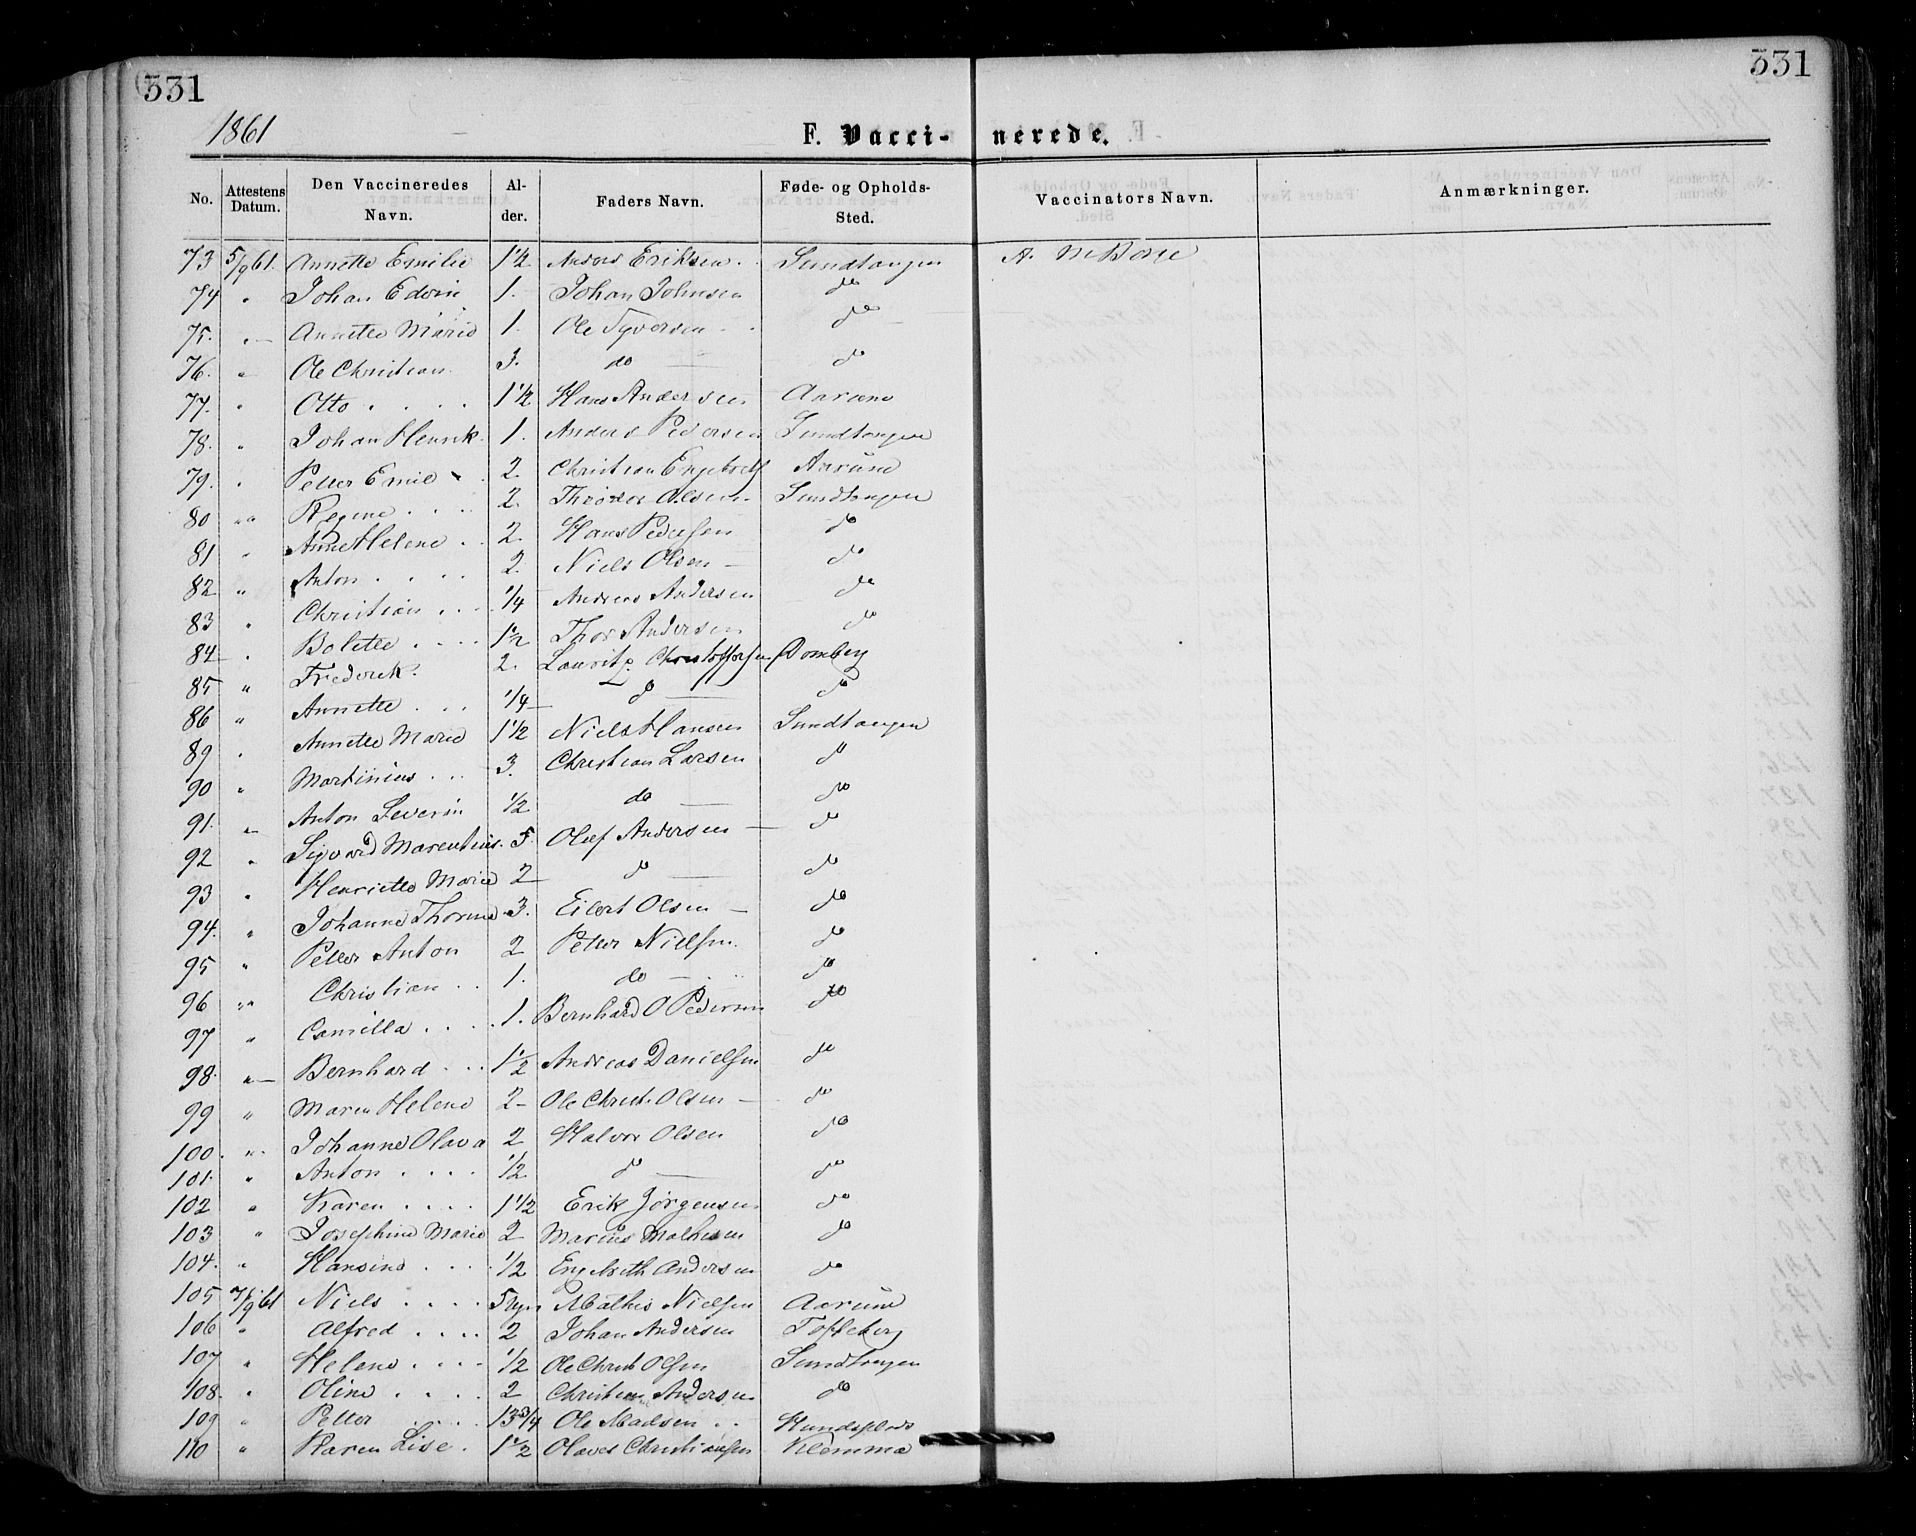 331
331
1861
F. Vaccinerede.
No. Attestens Datum. Den Vaccineredes Navn. Alder. Faders Navn. Føde- og Opholds-Sted. Vaccinators Navn. Anmærkninger.
73 5/9 61. Annette Emilie 1 1/2 Anders Eriksen Sundtangen A. M
74 " Johan Edvin 1. Johan Johnsen do
75. " Annette Marie 1. Ole Syversen do
76. " Ole Christian 3. do do
77. " Otto 1 1/2 Hans Andersen Aarum
78. " Johan Henrik 1. Anders Pedersen Sundtangen
79. " Petter Emil 2. Christian Aarum
80 " Regine 2. Throdor Olsen Sundtangen
81 " Anne Helene 2. Hans Pedersen do
82 " Anton 2. Niels Olsen do
83 " Christian 1/4 Andreas Andersen do
84 " Bolette 1 1/2 Thor Andersen do
85 " Frederik 2. Lauritz Christoffersen
86 " Annette 1/4 do do
89 " Annette Marie 1 1/2 Niels Hansen Sundtangen
90 " Martinius 3. Christian Larsen do
91. " Anton Severin 1/2 do do
92 " Sigvard Marentius 5. Olaf Andersen do
93 " Henriette Marie 2 do do
94. " Johanne Thorine 3. Eilert Olsen do
95 " Petter Anton 2 Petter Nielsen do
96 " Christian 1. do do
97 " Camilla 1. Bernhard O Pedersen do
98. " Bernhard 1 1/2 Andreas Danielsen do
99 " Maren Helene 2 Ole Christ. Olsen do
100. " Johanne Olava 2 Halvor Olsen do
101. " Anton 1/2 do do
102 " Karen 1 1/2 Erik Jørgensen do
103 " Josephine Marie 2 Marius Mathisen do
104. " Hansine 1/2 Engebreth Andersen do
105 7/9 61 Niels 5 Mathis Nielsen Aarum
106 " Alfred 2 Johan Andersen Tofteberg
107 " Helene 1/2 Ole Christ Olsen Sundtangen
108. " Oline 2 Christian Andersen do
109 " Petter 13 3/4 Ole Madsen
110 " Karen Lise. 1 1/2 Olaves Christiansen Klemma